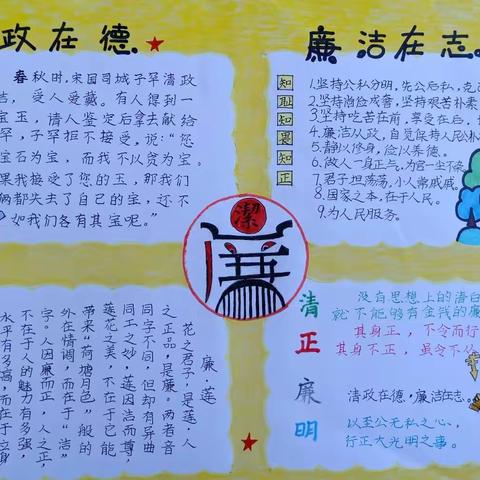 政在德
春秋时,宋国司城子罕清政
洁,受人爱藏。有人得到一
宝玉,请人鉴定后拿去献给
罕,子罕拒不接受,说:“您
宝石为宝,而我不以贪为宝。
果我接受了您的玉,那我们
俩都失去了自己的宝,还不
如我们各有其宝呢。”
廉洁在志。
知
耻
知
畏
知
正
1.坚持公私分明,先公后私,克己
2.坚持尚俭戒奢,坚持艰苦朴素
3.坚持吃苦在前,享受在后,
4.廉洁从政,自觉保持人民公仆
5.静以修身,俭以养德。
6.做人一身正气,为官一尘不染
7.君子坦荡荡,小人常戚戚。
8.国家之本,在于人民。
9.为人民服务。
潔
廉
廉·莲
花之君子,是莲。人
之正品,是廉。两者音
同字不同,但却有异曲
同工之妙,莲因洁而尊,
莲花之美,不在于它能
带来“荷塘月色”般的
外在情调,而在于“洁”
字。人因廉而正,人之正,
不在于人的魅力有多强,
水平有多高,而在于
清正廉明
没有思想上的清白
就不能够有金钱的廉
其身正,不令而行
其身不正,虽令不从
清政在德,廉洁在志。
以至公无私之心,
行正大光明之事。